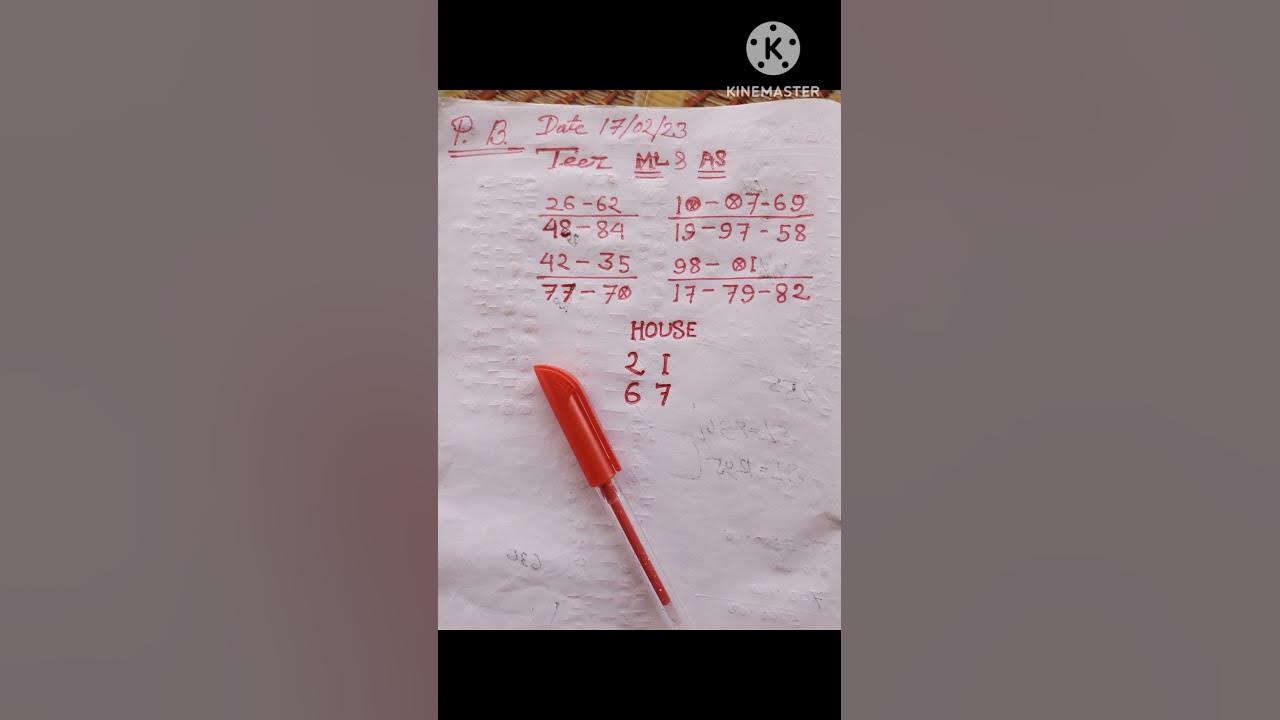 K
KINEMASTER
P. B. Date 17/02/23
Teer ML & AS
26-62 1⊗-⊗7-69
48-84 19-97-58
42-35 98-⊗1
77-7⊗ 17-79-82
HOUSE
2 1
6 7